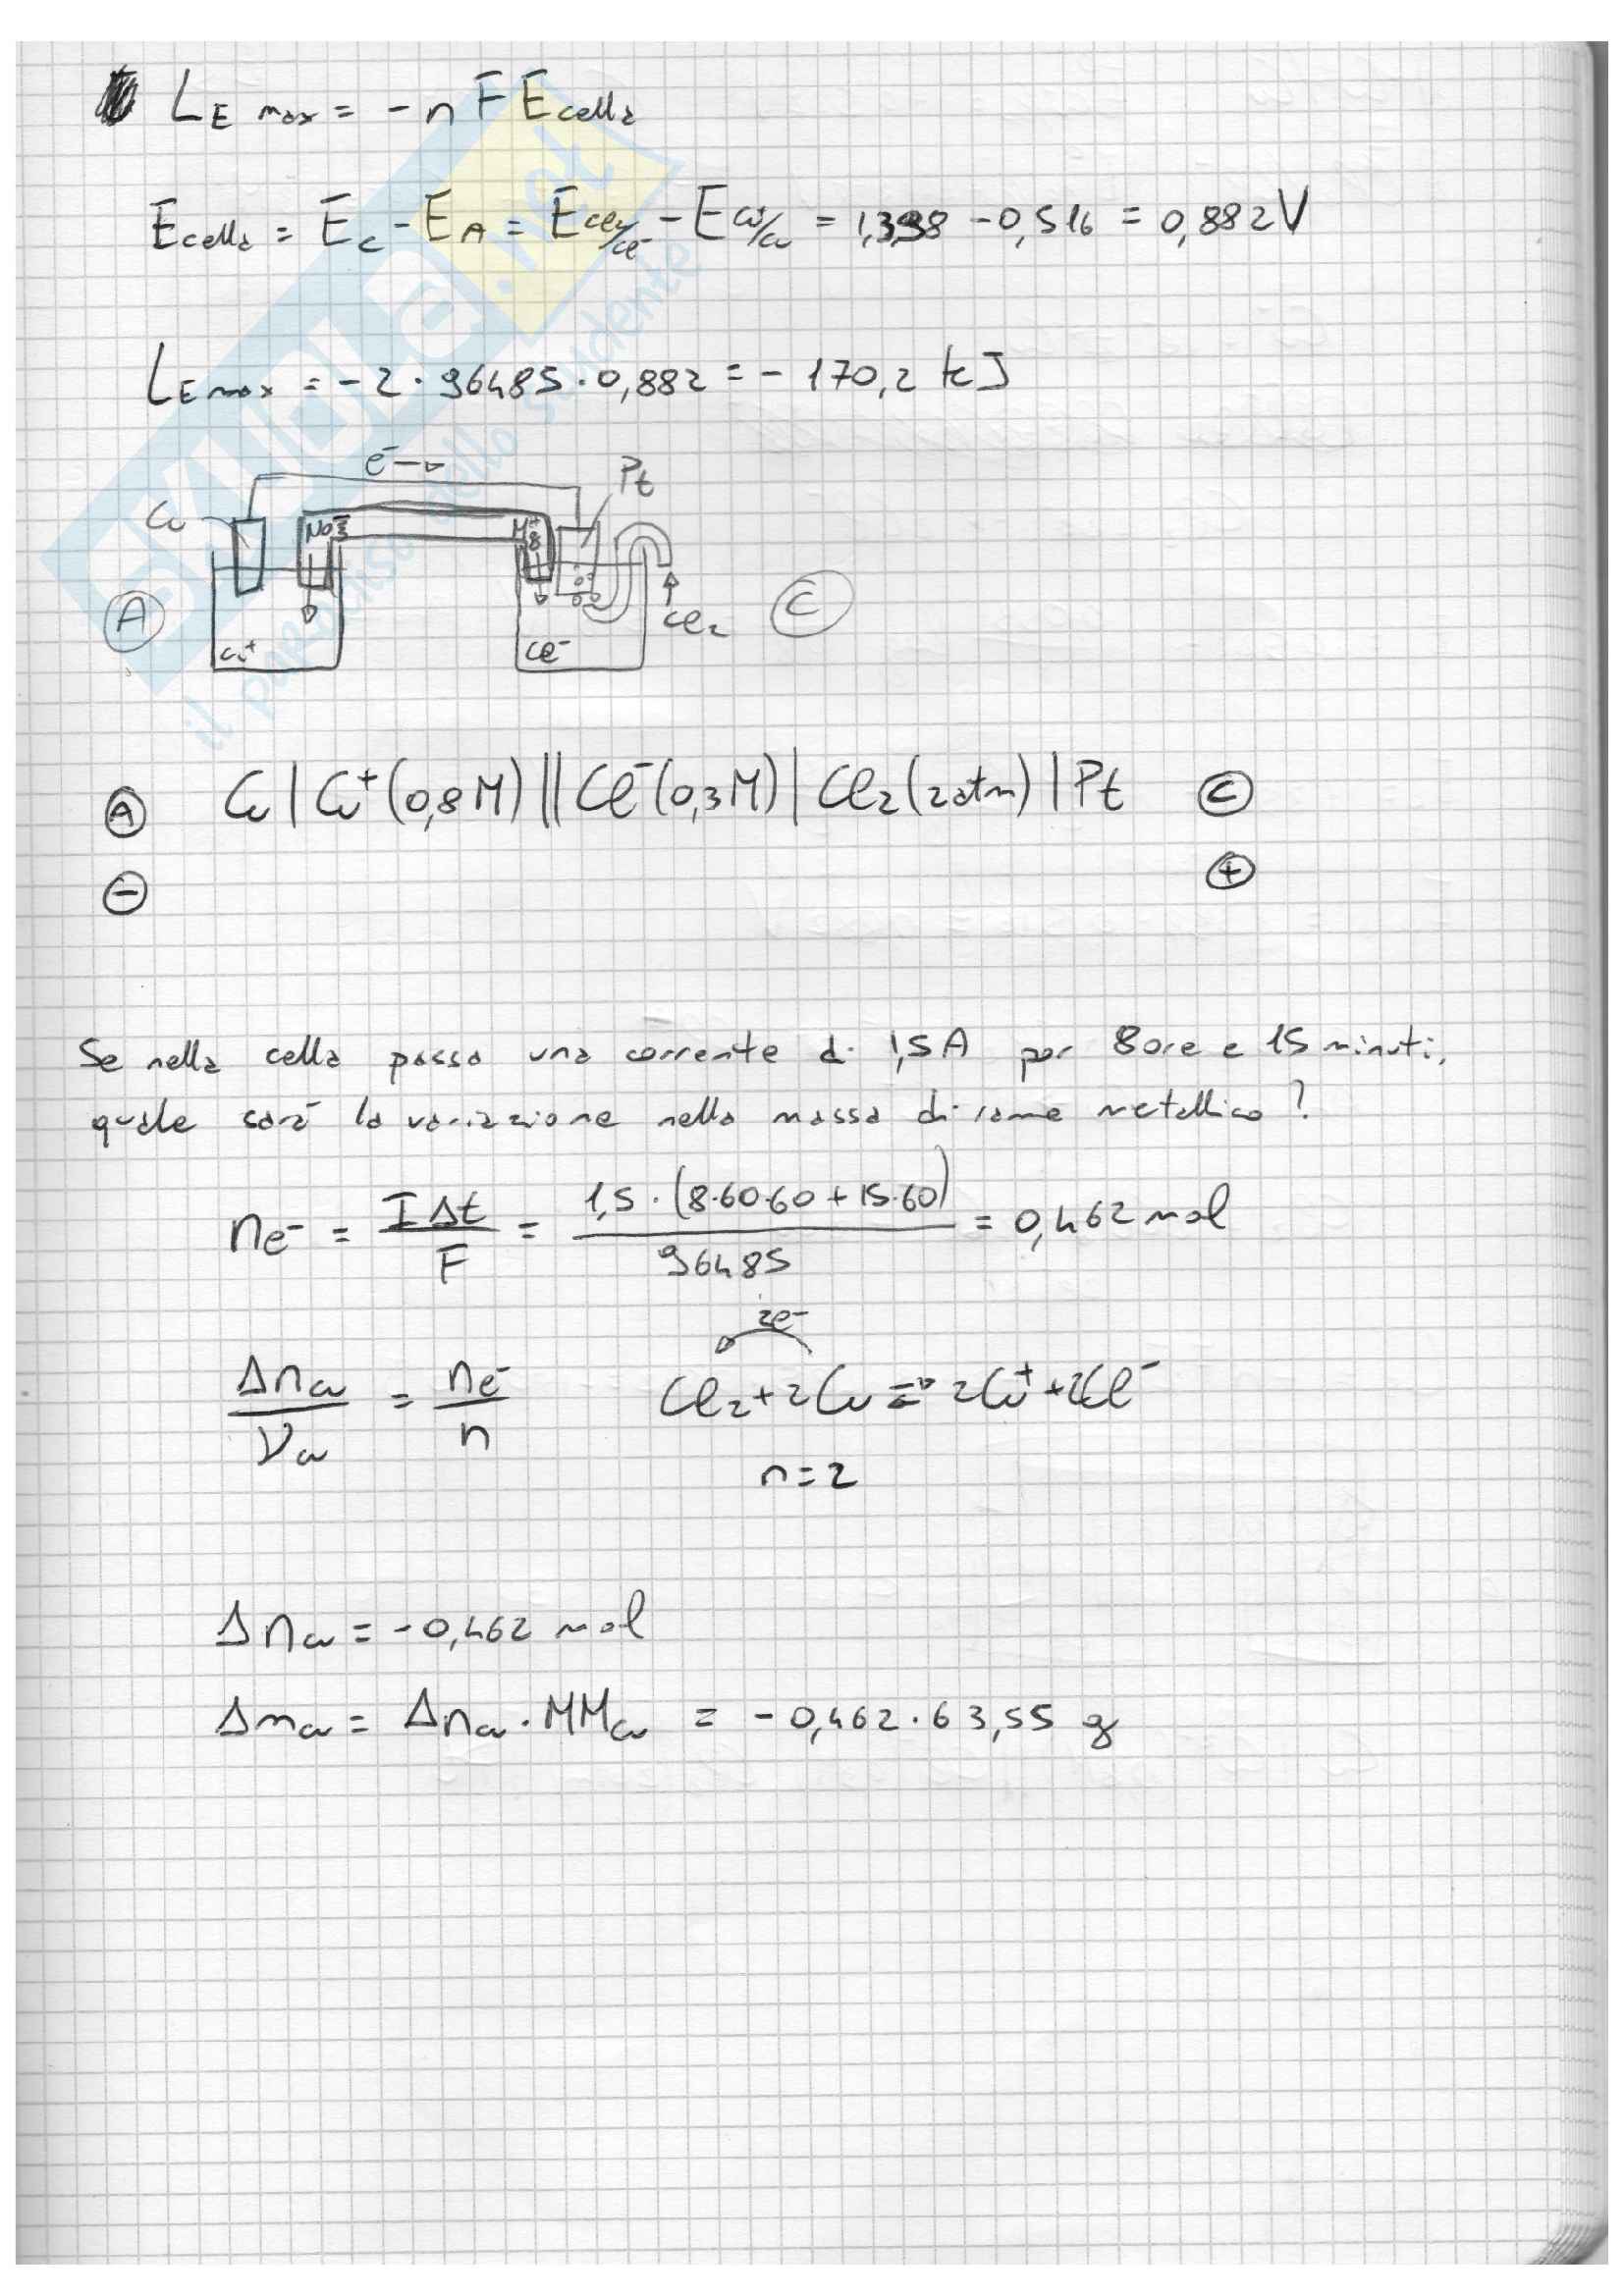 L_E max = - n F E cella
E cella = E_C - E_A = E Cl₂/Cl⁻ - E Cu⁺/Cu = 1,398 - 0,516 = 0,882 V
L_E max = - 2 · 96485 · 0,882 = - 170,2 kJ
e⁻ →
Pt
Cu
NO₃⁻
A
C
Cl₂
Cu⁺
Cl⁻
A Cu | Cu⁺ (0,8 M) || Cl⁻ (0,3 M) | Cl₂ (2 atm) | Pt C
- +
Se nella cella passa una corrente di 1,5 A per 8 ore e 15 minuti,
quale sarà la variazione nella massa di rame metallico?
n e⁻ = I Δt / F = 1,5 · (8·60·60 + 15·60) / 96485 = 0,462 mol
2e⁻
Δn Cu / ν Cu = n e⁻ / n Cl₂ + 2Cu ⇌ 2Cu⁺ + 2Cl⁻
n = 2
Δn Cu = - 0,462 mol
Δm Cu = Δn Cu · MM Cu = - 0,462 · 63,55 g
SKUOLA.net
il paradiso dello studente